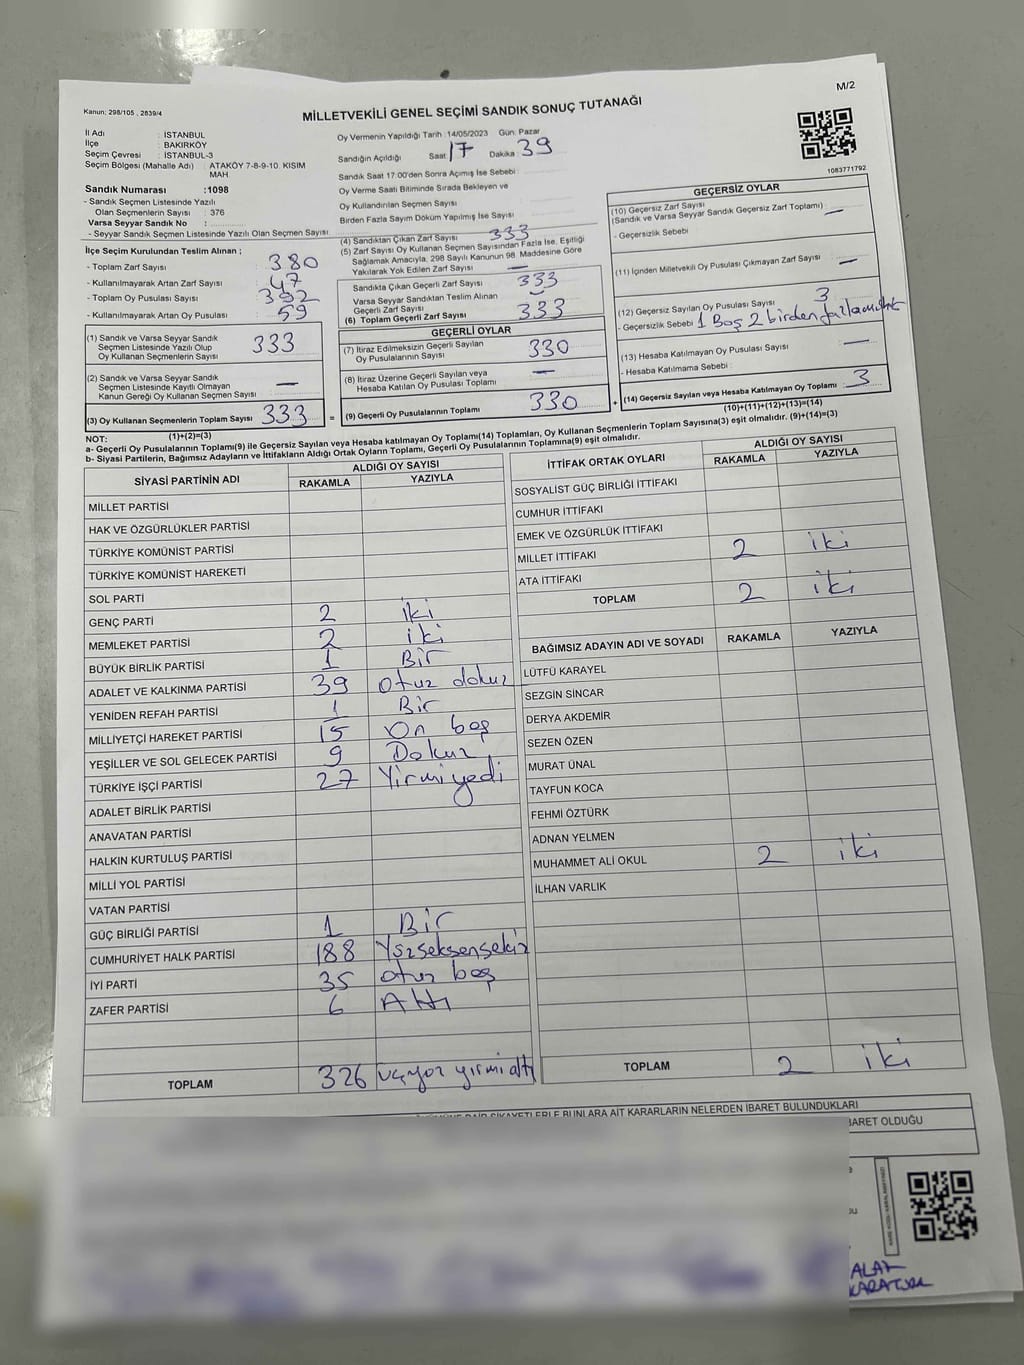 M/2
Kanun: 298/105 , 2839/4
MİLLETVEKİLİ GENEL SEÇİMİ SANDIK SONUÇ TUTANAĞI
İl Adı : İSTANBUL
İlçe : BAKIRKÖY
Seçim Çevresi : İSTANBUL-3
Seçim Bölgesi (Mahalle Adı) : ATAKÖY 7-8-9-10. KISIM MAH
Sandık Numarası :1098
- Sandık Seçmen Listesinde Yazılı
Olan Seçmenlerin Sayısı : 376
Varsa Seyyar Sandık No :
- Seyyar Sandık Seçmen Listesinde Yazılı Olan Seçmen Sayısı
Oy Vermenin Yapıldığı Tarih : 14/05/2023 Gün: Pazar
Sandığın Açıldığı Saat 17 Dakika 39
Sandık Saat 17:00'den Sonra Açımış İse Sebebi :
Oy Verme Saati Bitiminde Sırada Bekleyen ve
Oy Kullandırılan Seçmen Sayısı
Birden Fazla Sayım Döküm Yapılmış İse Sayısı
1083771792
İlçe Seçim Kurulundan Teslim Alınan ;
- Toplam Zarf Sayısı 380
- Kullanılmayarak Artan Zarf Sayısı 47
- Toplam Oy Pusulası Sayısı 392
- Kullanılmayarak Artan Oy Pusulası 59
(1) Sandık ve Varsa Seyyar Sandık
Seçmen Listesinde Yazılı Olup
Oy Kullanan Seçmenlerin Sayısı 333
(2) Sandık ve Varsa Seyyar Sandık
Seçmen Listesinde Kayıtlı Olmayan
Kanun Gereği Oy Kullanan Seçmen Sayısı —
(3) Oy Kullanan Seçmenlerin Toplam Sayısı 333 =
(1)+(2)=(3)
(4) Sandıktan Çıkan Zarf Sayısı 333
(5) Zarf Sayısı Oy Kullanan Seçmen Sayısından Fazla İse, Eşitliği
Sağlamak Amacıyla, 298 Sayılı Kanunun 98. Maddesine Göre
Yakılarak Yok Edilen Zarf Sayısı —
Sandıkta Çıkan Geçerli Zarf Sayısı 333
Varsa Seyyar Sandıktan Teslim Alınan
Geçerli Zarf Sayısı —
(6) Toplam Geçerli Zarf Sayısı 333
GEÇERLİ OYLAR
(7) İtiraz Edilmeksizin Geçerli Sayılan
Oy Pusulalarının Sayısı 330
(8) İtiraz Üzerine Geçerli Sayılan veya
Hesaba Katılan Oy Pusulası Toplamı —
(9) Geçerli Oy Pusulalarının Toplamı 330 +
GEÇERSİZ OYLAR
(10) Geçersiz Zarf Sayısı
(Sandık ve Varsa Seyyar Sandık Geçersiz Zarf Toplamı) —
- Geçersizlik Sebebi
(11) İçinden Milletvekili Oy Pusulası Çıkmayan Zarf Sayısı —
(12) Geçersiz Sayılan Oy Pusulası Sayısı 3
- Geçersizlik Sebebi 1 Boş 2 birden fazla
(13) Hesaba Katılmayan Oy Pusulası Sayısı —
- Hesaba Katılmama Sebebi :
(14) Geçersiz Sayılan veya Hesaba Katılmayan Oy Toplamı 3
(10)+(11)+(12)+(13)=(14)
NOT:
a- Geçerli Oy Pusulalarının Toplamı(9) ile Geçersiz Sayılan veya Hesaba katılmayan Oy Toplamı(14) Toplamları, Oy Kullanan Seçmenlerin Toplam Sayısına(3) eşit olmalıdır. (9)+(14)=(3)
b- Siyasi Partilerin, Bağımsız Adayların ve İttifakların Aldığı Ortak Oyların Toplamı, Geçerli Oy Pusulalarının Toplamına(9) eşit olmalıdır.
SİYASİ PARTİNİN ADI ALDIĞI OY SAYISI
RAKAMLA YAZIYLA
MİLLET PARTİSİ
HAK VE ÖZGÜRLÜKLER PARTİSİ
TÜRKİYE KOMÜNİST PARTİSİ
TÜRKİYE KOMÜNİST HAREKETİ
SOL PARTİ
GENÇ PARTİ 2 iki
MEMLEKET PARTİSİ 2 iki
BÜYÜK BİRLİK PARTİSİ 1 Bir
ADALET VE KALKINMA PARTİSİ 39 otuz dokuz
YENİDEN REFAH PARTİSİ 1 Bir
MİLLİYETÇİ HAREKET PARTİSİ 15 On beş
YEŞİLLER VE SOL GELECEK PARTİSİ 9 Dokuz
TÜRKİYE İŞÇİ PARTİSİ 27 Yirmi yedi
ADALET BİRLİK PARTİSİ
ANAVATAN PARTİSİ
HALKIN KURTULUŞ PARTİSİ
MİLLİ YOL PARTİSİ
VATAN PARTİSİ
GÜÇ BİRLİĞİ PARTİSİ 1 Bir
CUMHURİYET HALK PARTİSİ 188 Yüzseksensekiz
İYİ PARTİ 35 otuz beş
ZAFER PARTİSİ 6 Altı
TOPLAM 326 üçyüz yirmi altı
İTTİFAK ORTAK OYLARI ALDIĞI OY SAYISI
RAKAMLA YAZIYLA
SOSYALİST GÜÇ BİRLİĞİ İTTİFAKI
CUMHUR İTTİFAKI
EMEK VE ÖZGÜRLÜK İTTİFAKI
MİLLET İTTİFAKI 2 iki
ATA İTTİFAKI
TOPLAM 2 iki
BAĞIMSIZ ADAYIN ADI VE SOYADI RAKAMLA YAZIYLA
LÜTFÜ KARAYEL
SEZGİN SİNCAR
DERYA AKDEMİR
SEZEN ÖZEN
MURAT ÜNAL
TAYFUN KOCA
FEHMİ ÖZTÜRK
ADNAN YELMEN
MUHAMMET ALİ OKUL 2 iki
İLHAN VARLIK
TOPLAM 2 iki
ŞİKAYETLERLE BUNLARA AİT KARARLARIN NELERDEN İBARET BULUNDUKLARI
İBARET OLDUĞU